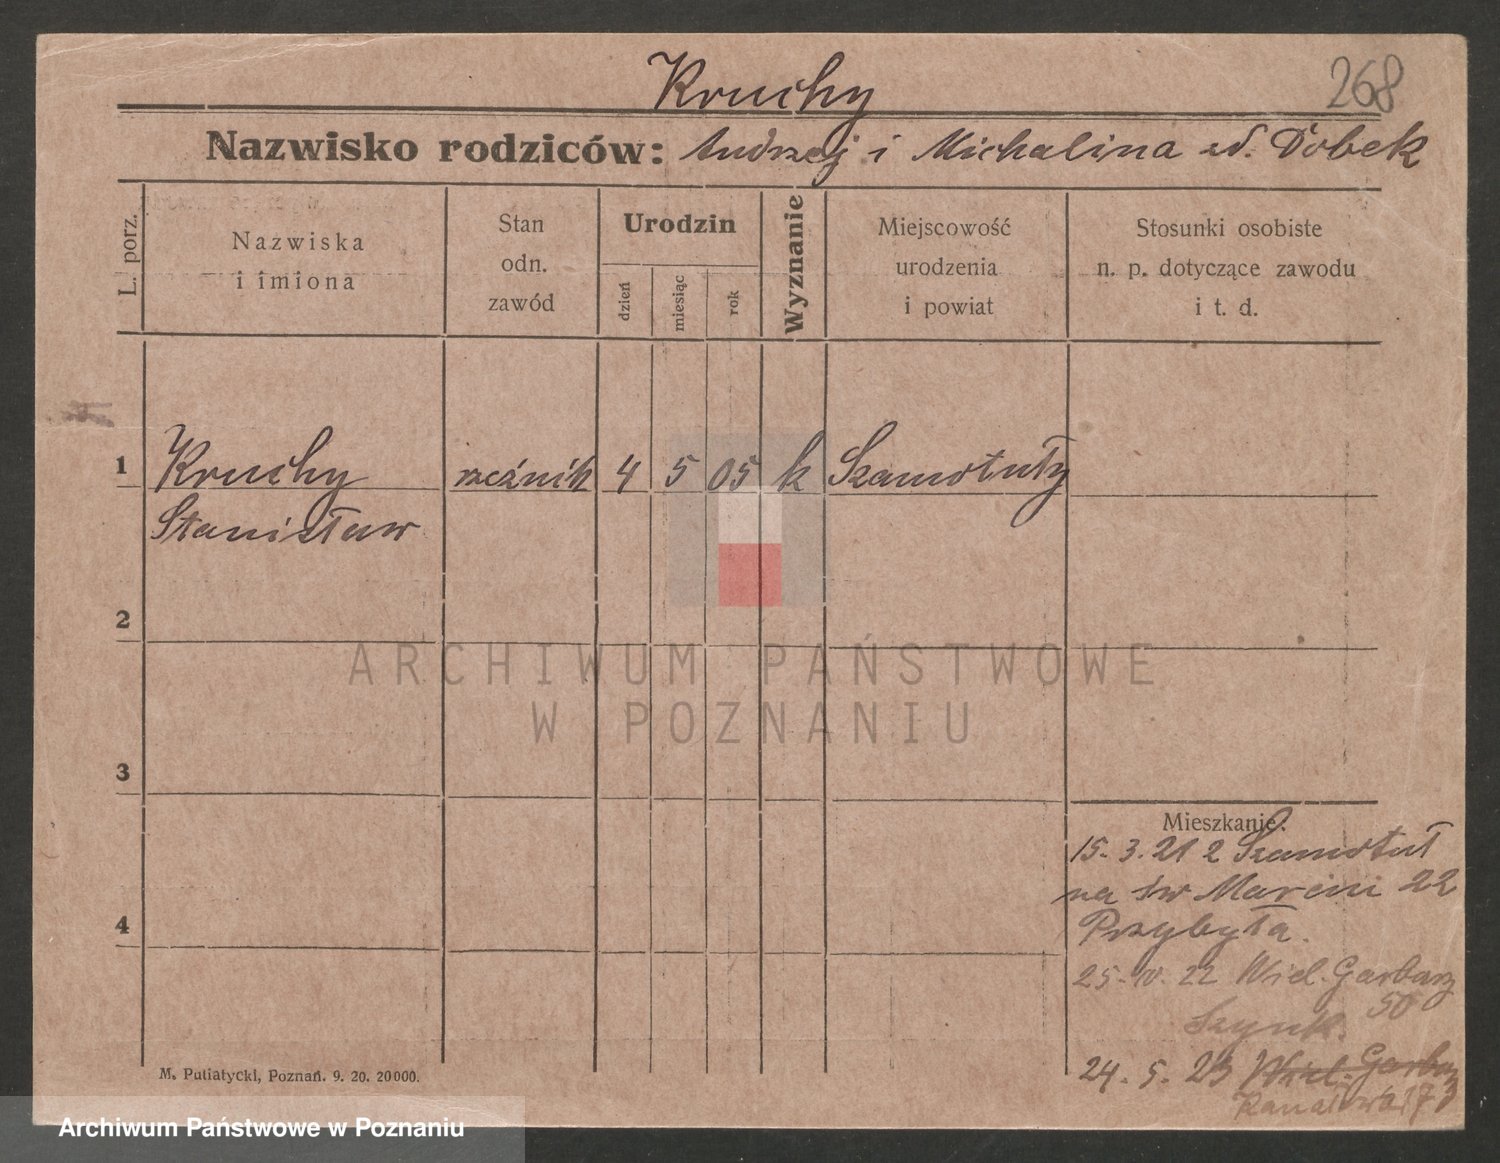 Kruchy
268
Nazwisko rodziców: Andrzej i Michalina zd. Dobek
L. porz.
Nazwiska
i imiona
Stan
odn.
zawód
Urodzin
dzień
miesiąc
rok
Wyznanie
Miejscowość
urodzenia
i powiat
Stosunki osobiste
n. p. dotyczące zawodu
i t. d.
1
Kruchy rzeźnik 4 5 05 k Szamotuły
Stanisław
2
3
4
ARCHIWUM PAŃSTWOWE
W POZNANIU
Mieszkanie:
15. 3. 21 z Szamotuł
na św Marcin 22
Przybyła.
25. 10. 22 Wiel. Garbary
50
24. 5. 23 Wiel. Garbary
M. Putiatycki, Poznań. 9. 20. 20000.
Archiwum Państwowe w Poznaniu